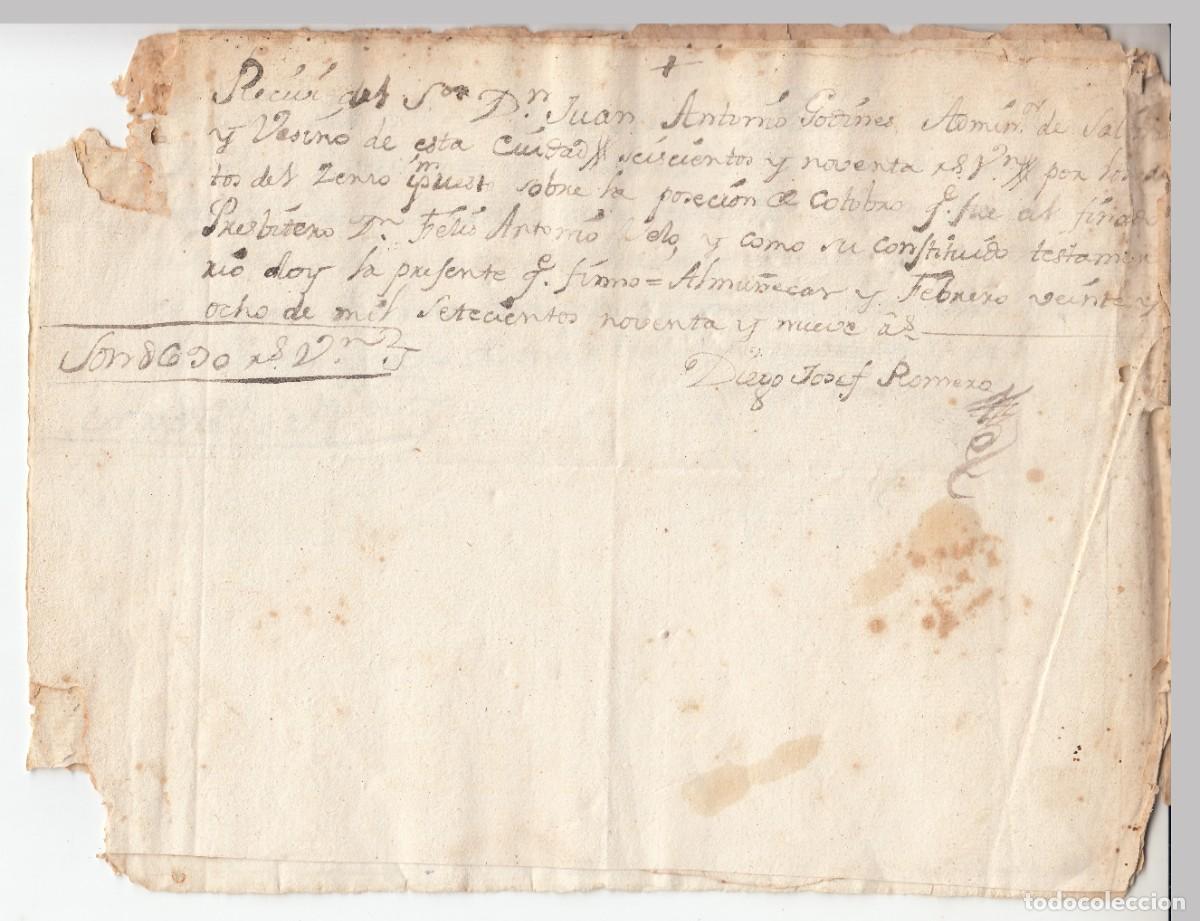 +
Reciui del S.or D.n Juan Antonio Godines Admin.or de Sal
y Vesino de esta Cuidad seiscientos y noventa r.s V.n por los
tos del Zenso ymp.uesto sobre la poseción de Cotobro q.e fue del finado
Presbitero D.n Felis Antonio y como su constituido testamen
rio doy la presente q.e firmo = Almuñecar y Febrero veinte y
ocho de mil Setecientos noventa y nueve a.s
Son 690 r.s V.n
Diego Josef Romero
todocoleccion